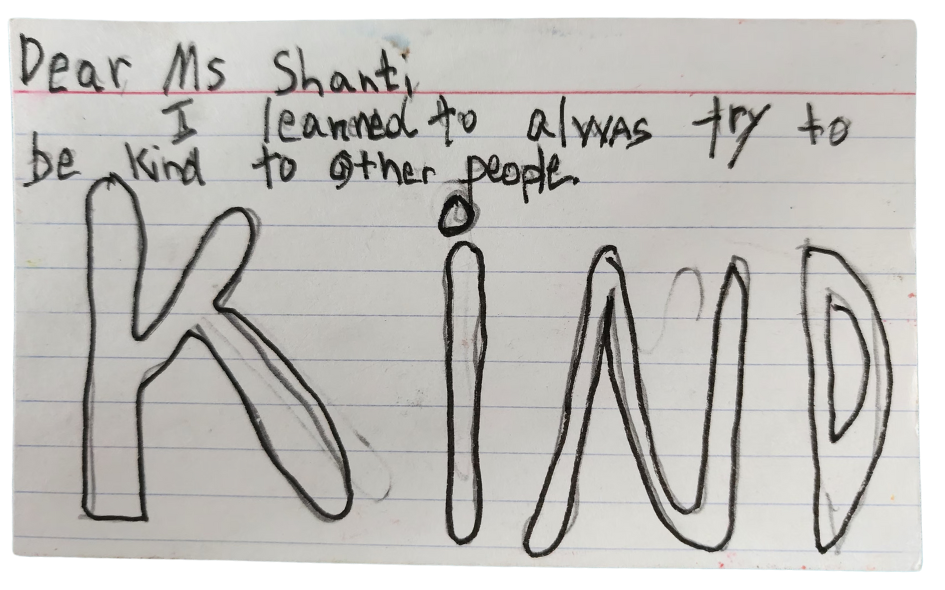 Dear Ms Shanti,
I learned to alwas try to
be kind to other people.
KiND